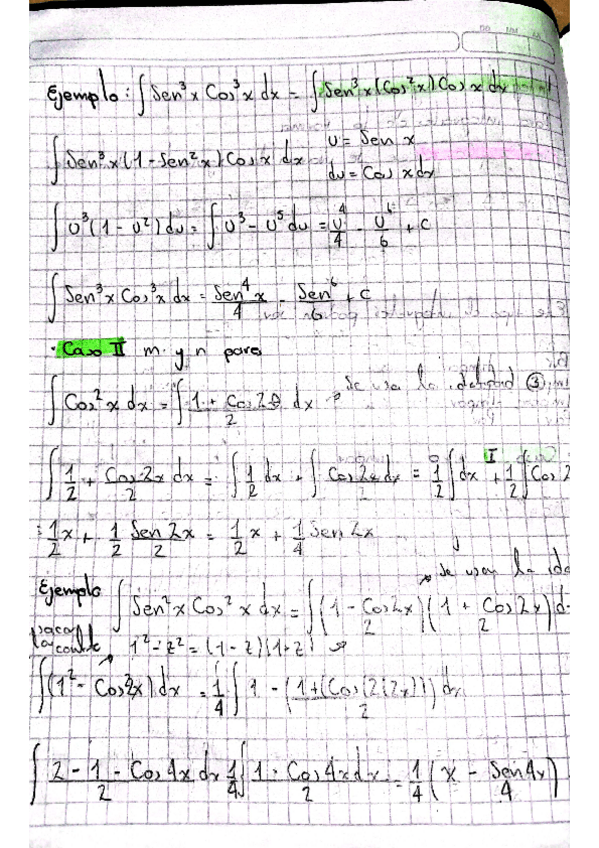 Ejemplo: ∫ Sen³x Cos³x dx = ∫ Sen³x (Cos²x) Cos x dx
∫ Sen³x (1 - Sen²x) Cos x dx   U = Sen x
du = Cos x dx
∫ U³ (1 - U²) du = ∫ U³ - U⁵ du = U⁴/4 - U⁶/6 + C
∫ Sen³x Cos³x dx = Sen⁴x/4 - Sen⁶/6 + C
· Caso II m y n pares
∫ Cos²x dx = ∫ (1 + Cos 2θ)/2 dx → Se usa la identidad ③
∫ 1/2 + Cos 2x/2 dx = ∫ 1/2 dx + ∫ Cos 2x/2 dx = 1/2 ∫ dx + 1/2 ∫ Cos 2
= 1/2 x + 1/2 Sen 2x/2 = 1/2 x + 1/4 Sen 2x
Se usan la ide
Ejemplo ∫ Sen²x Cos²x dx = ∫ (1 - Cos 2x)/2 (1 + Cos 2x)/2 d
1² - z² = (1 - z)(1 + z)
∫ (1² - Cos²2x) dx = 1/4 ∫ 1 - (1 + (Cos (2(2x)))/2) dx
∫ (2 - 1 - Cos 4x)/2 dx 1/4 ∫ (1 - Cos 4x)/2 dx = 1/4 (x - Sen 4x/4)